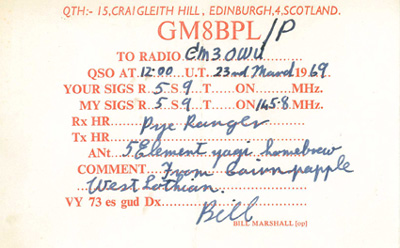 QTH:- 15, CRAIGLEITH HILL, EDINBURGH, 4, SCOTLAND.
GM8BPL/P
TO RADIO GM3OWU
QSO AT 12:00 U.T. 23rd March 1969
YOUR SIGS R 5 S 9 T ON MHz.
MY SIGS R 5 S 9 T ON 145.8 MHz.
Rx HR Pye Ranger
Tx HR
ANt 5 Element yagi homebrew
COMMENT From Cairnpapple
West Lothian.
VY 73 es gud Dx
Bill
BILL MARSHALL [op]